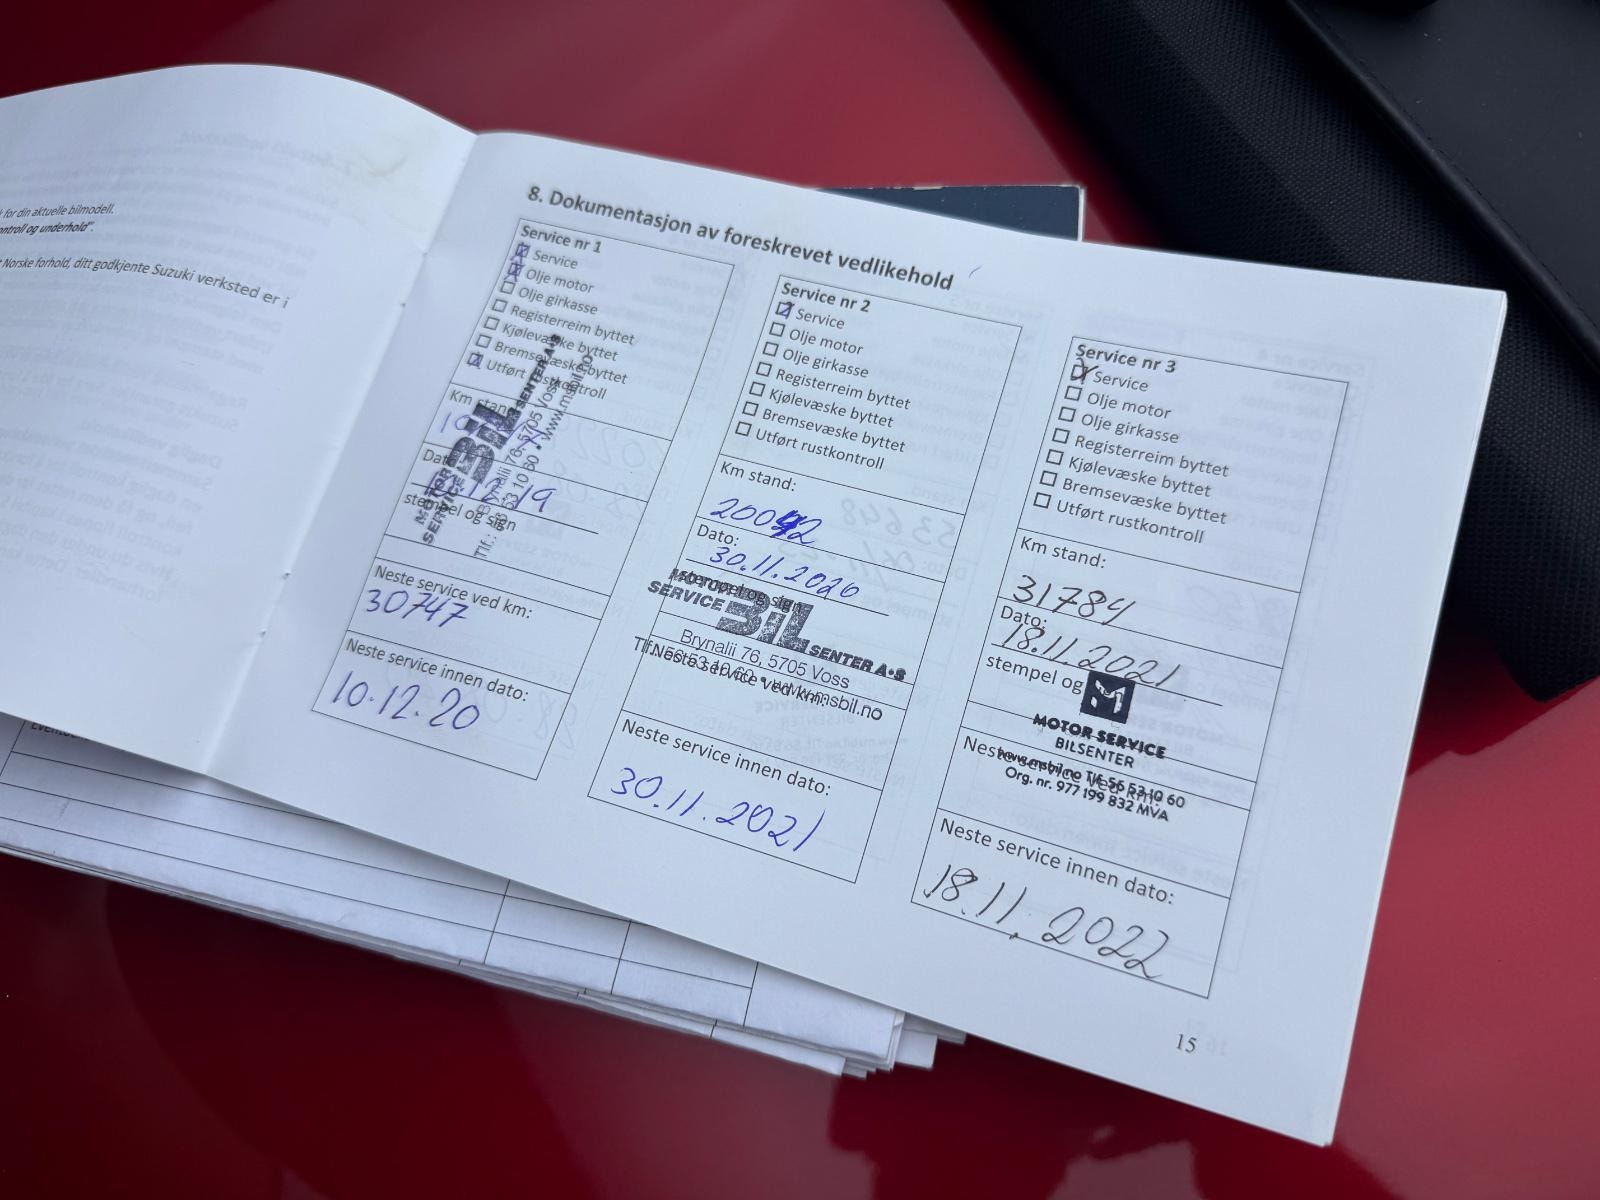 for din aktuelle bilmodell.
ontroll og underhold".
Norske forhold, ditt godkjente Suzuki verksted er i
8. Dokumentasjon av foreskrevet vedlikehold
Service nr 1
Service
Olje motor
Olje girkasse
Registerreim byttet
Kjølevæske byttet
Bremsevæske byttet
Utført rustkontroll
Km stand:
Dato:
12.19
stempel og sign
MOTOR SERVICE BIL SENTER A•S
Brynalii 76, 5705 Voss
Tlf.: 56 53 10 60 • www.msbil.no
Neste service ved km:
30747
Neste service innen dato:
10.12.20
Service nr 2
Service
Olje motor
Olje girkasse
Registerreim byttet
Kjølevæske byttet
Bremsevæske byttet
Utført rustkontroll
Km stand:
20042
Dato:
30.11.2020
stempel og sign
MOTOR SERVICE BIL SENTER A•S
Brynalii 76, 5705 Voss
Tlf.: 56 53 10 60 • www.msbil.no
Neste service ved km:
Neste service innen dato:
30.11.2021
Service nr 3
Service
Olje motor
Olje girkasse
Registerreim byttet
Kjølevæske byttet
Bremsevæske byttet
Utført rustkontroll
Km stand:
31784
Dato:
18.11.2021
stempel og sign
MOTOR SERVICE
BILSENTER
www.msbil.no Tlf 56 53 10 60
Org. nr. 977 199 832 MVA
Neste service ved km:
Neste service innen dato:
18.11.2022
15